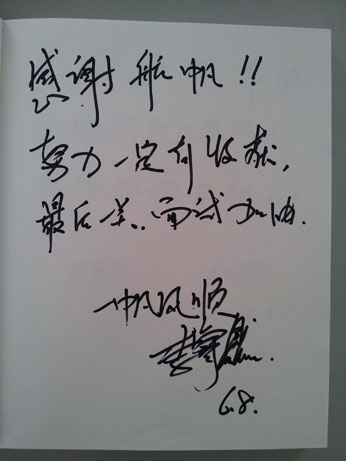 感谢航帆!!
努力一定有收获,
最后关..面试加油.
一帆风顺
李
6.8.